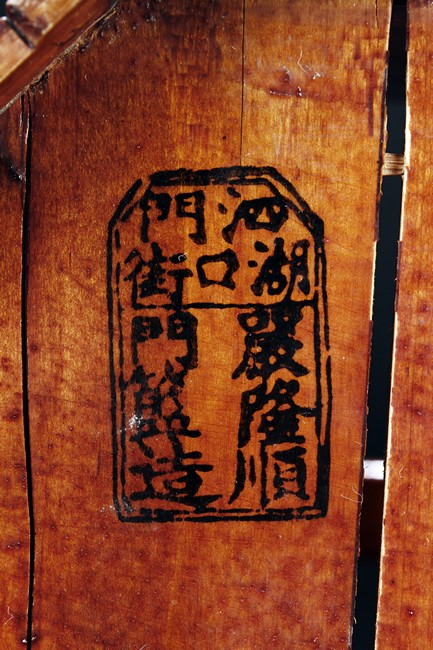 泗湖
口
門街
嚴隆順
門製造